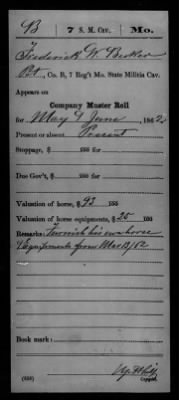 B | 7 S. M. Cav. | Mo.
Frederick W. Becker
Pvt., Co. B, 7 Reg't Mo. State Militia Cav.
Appears on
Company Muster Roll
for May & June, 1862.
Present or absent Present
Stoppage, $ 100 for
Due Gov't, $ 100 for
Valuation of horse, $ 93 100
Valuation of horse equipments, $ 25 100
Remarks: Furnish his own horse
& Equipments from Mar 13/62
Book mark:
(858)
Copyist.